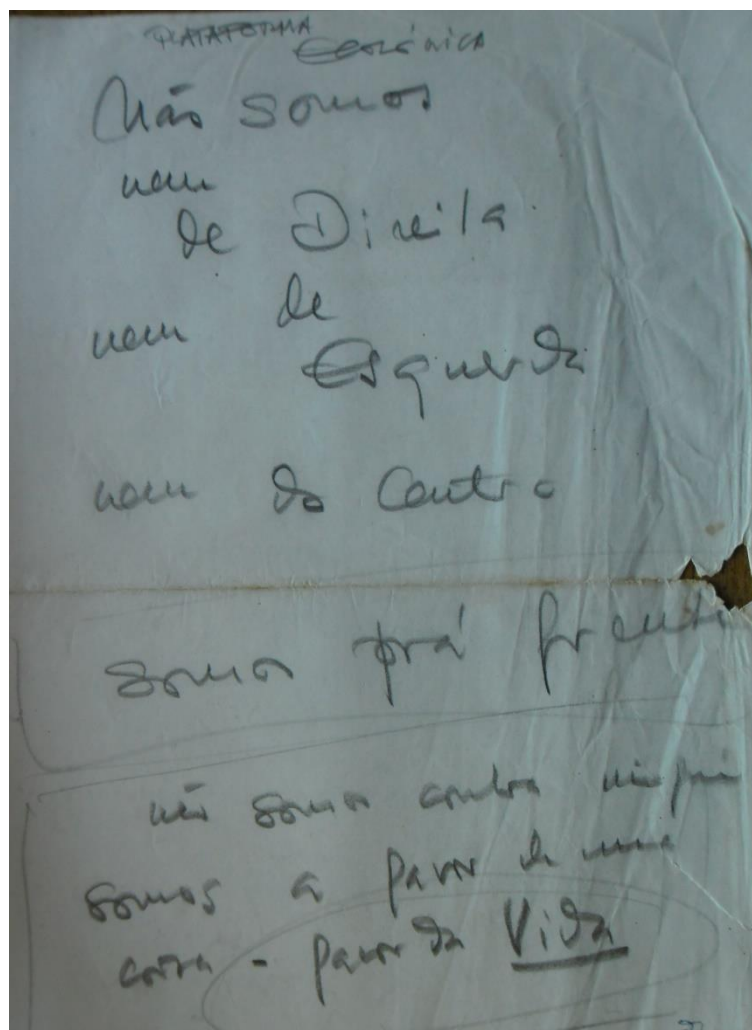 PLATAFORMA
Não somos
nem
de Direita
nem de
Esquerda
nem do Centro
somos prá frente
não somos contra
somos a favor de uma
coisa - favor da Vida